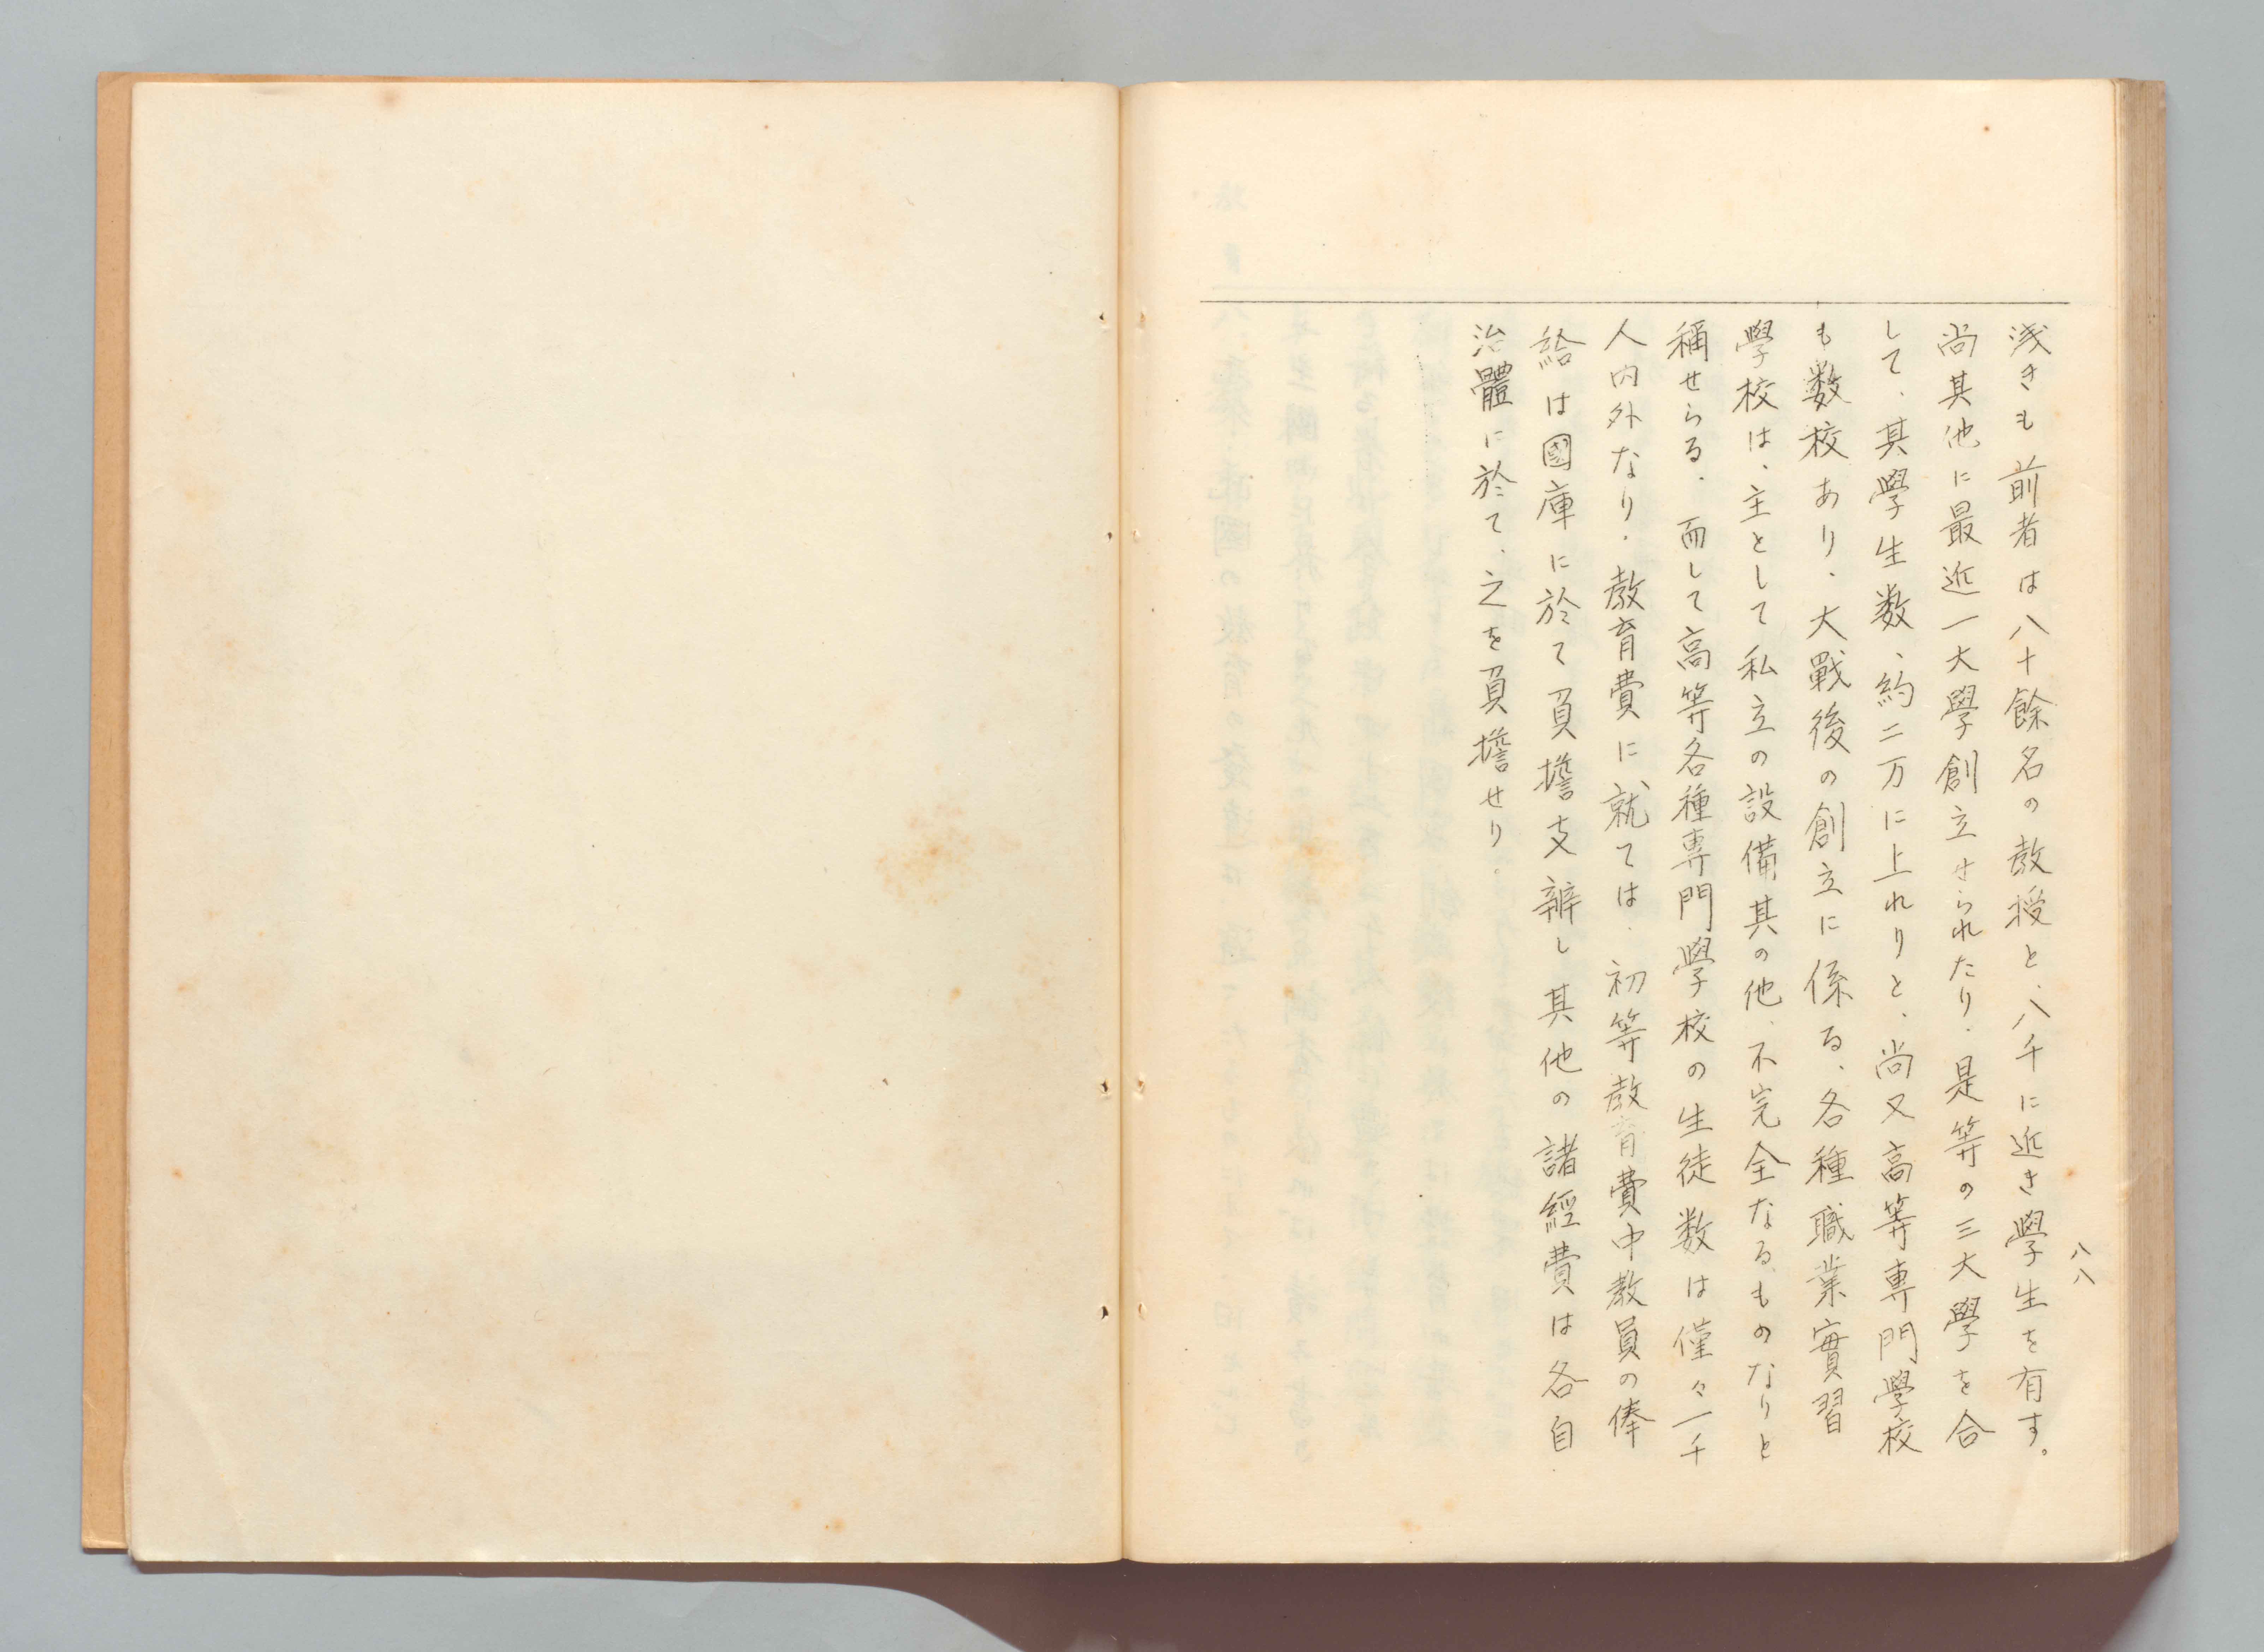 浅きも前者は八十餘名の教授と、八千に近き學生を有す。
尚其他に最近一大學創立せられたり。是等の三大學を合
して、其學生数、約二万に上れりと、尚又高等専門學校
も数校あり、大戰後の創立に係る、各種職業實習
學校は、主として私立の設備其の他、不完全なるものなりと
稱せらる。而して高等各種専門學校の生徒数は僅々一千
人内外なり。教育費に就ては、初等教育費中教員の俸
給は國庫に於て負擔支辦し其他の諸經費は各自
治體に於て、之を負擔せり。
八八